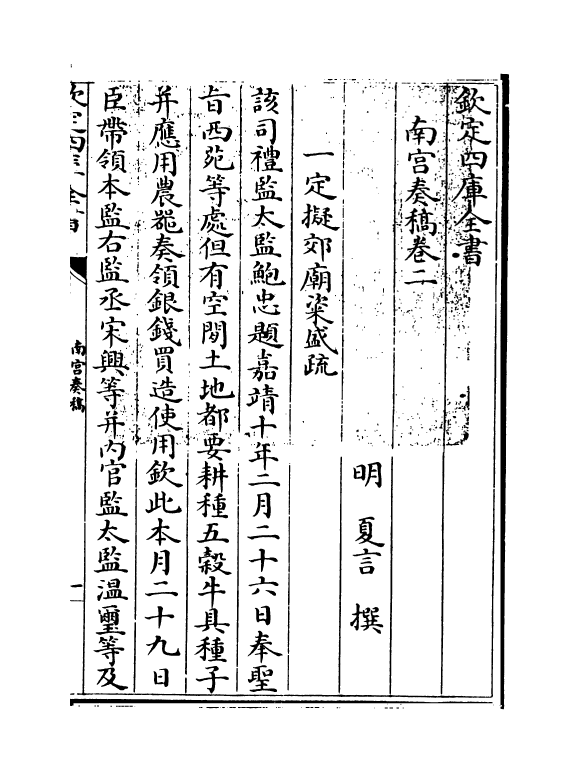 欽定四庫全書
南宮奏稿卷二
明 夏言 撰
一定擬郊廟粢盛疏
該司禮監太監鮑忠題嘉靖十年二月二十六日奉聖
旨西苑等處但有空閒土地都要耕種五穀牛具種子
并應用農器奏領銀錢買造使用欽此本月二十九日
臣帶領本監右監丞宋興等并内官監太監溫璽等及
欽定四庫全書
南宮奏稿
一